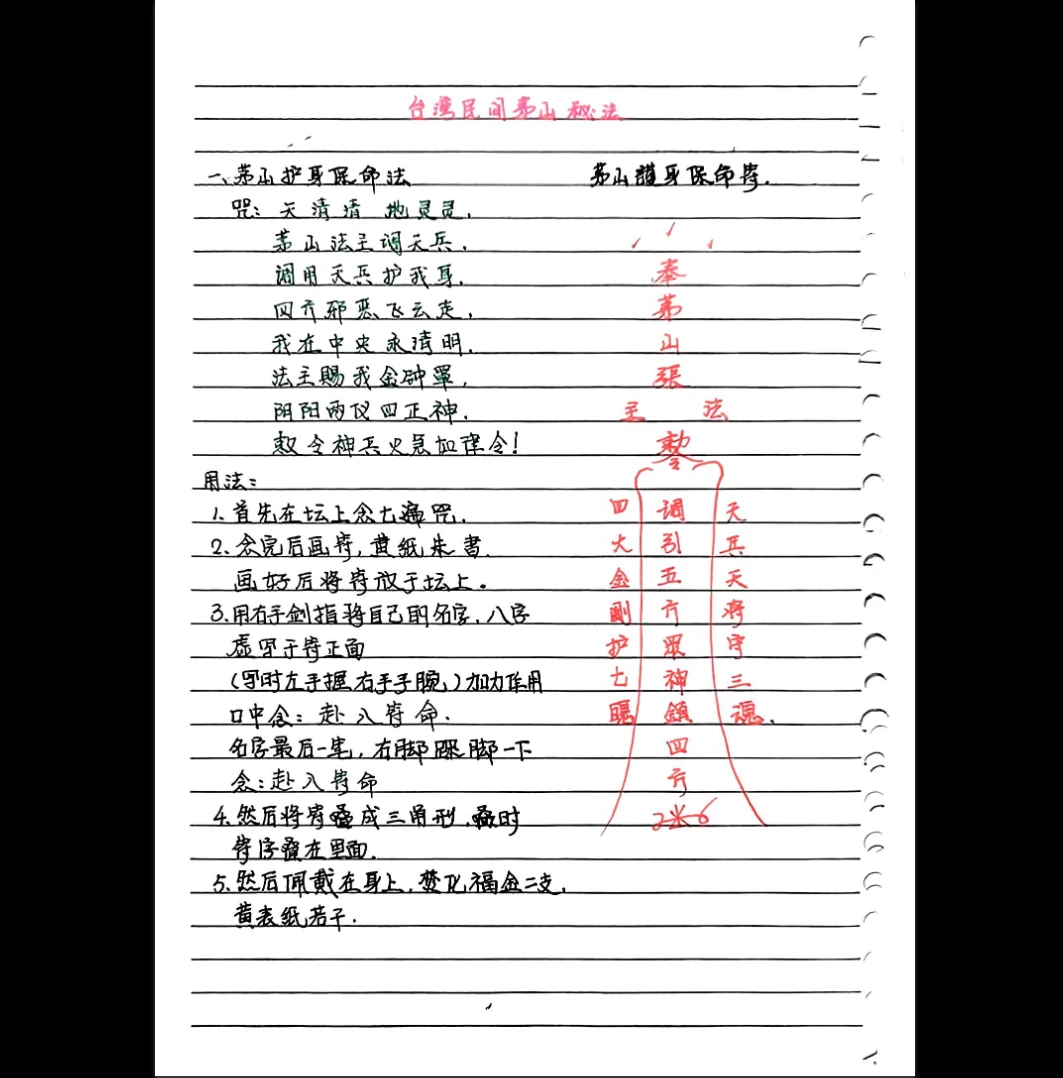 台湾民间茅山秘法
一、茅山护身保命法
茅山護身保命符.
咒：天清清 地灵灵，
茅山法主调天兵，
调用天兵护我身，
四方邪恶飞云走，
我在中央永清明，
法主赐我金钟罩，
阴阳两仪四正神，
敕令神兵火急如律令！
用法：
1、首先在坛上念七遍咒.
2、念完后画符，黄纸朱書.
画好后将符放于坛上。
3、用右手剑指将自己的名字、八字
虚写于符正面
(写时左手握右手手腕)加力作用
口中念：赴入符命.
名字最后一笔，右脚踩脚一下
念：赴入符命
4、然后将符叠成三角形，叠时
符字叠在里面.
5、然后佩戴在身上，焚化福金二支，
黄表纸若干.
奉
茅
山
張
主 法
四 調 天
大 引 兵
金 五 天
剛 方 将
护 眾 守
七 神 三
鎮 魂.
四
方